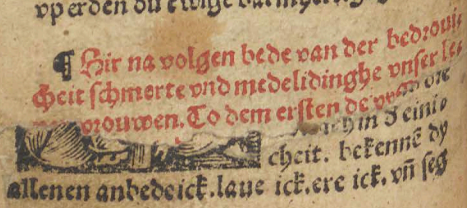 vp erden du ewige barmhertig
¶ Hir na volgen bede van der bedroui-
cheit smerte vnd medelidinghe vnser le-
vrouwen. To dem ersten de
in d eini-
cheit. bekenne dy
allenen anbede ick. laue ick. ere ick. vñ seg